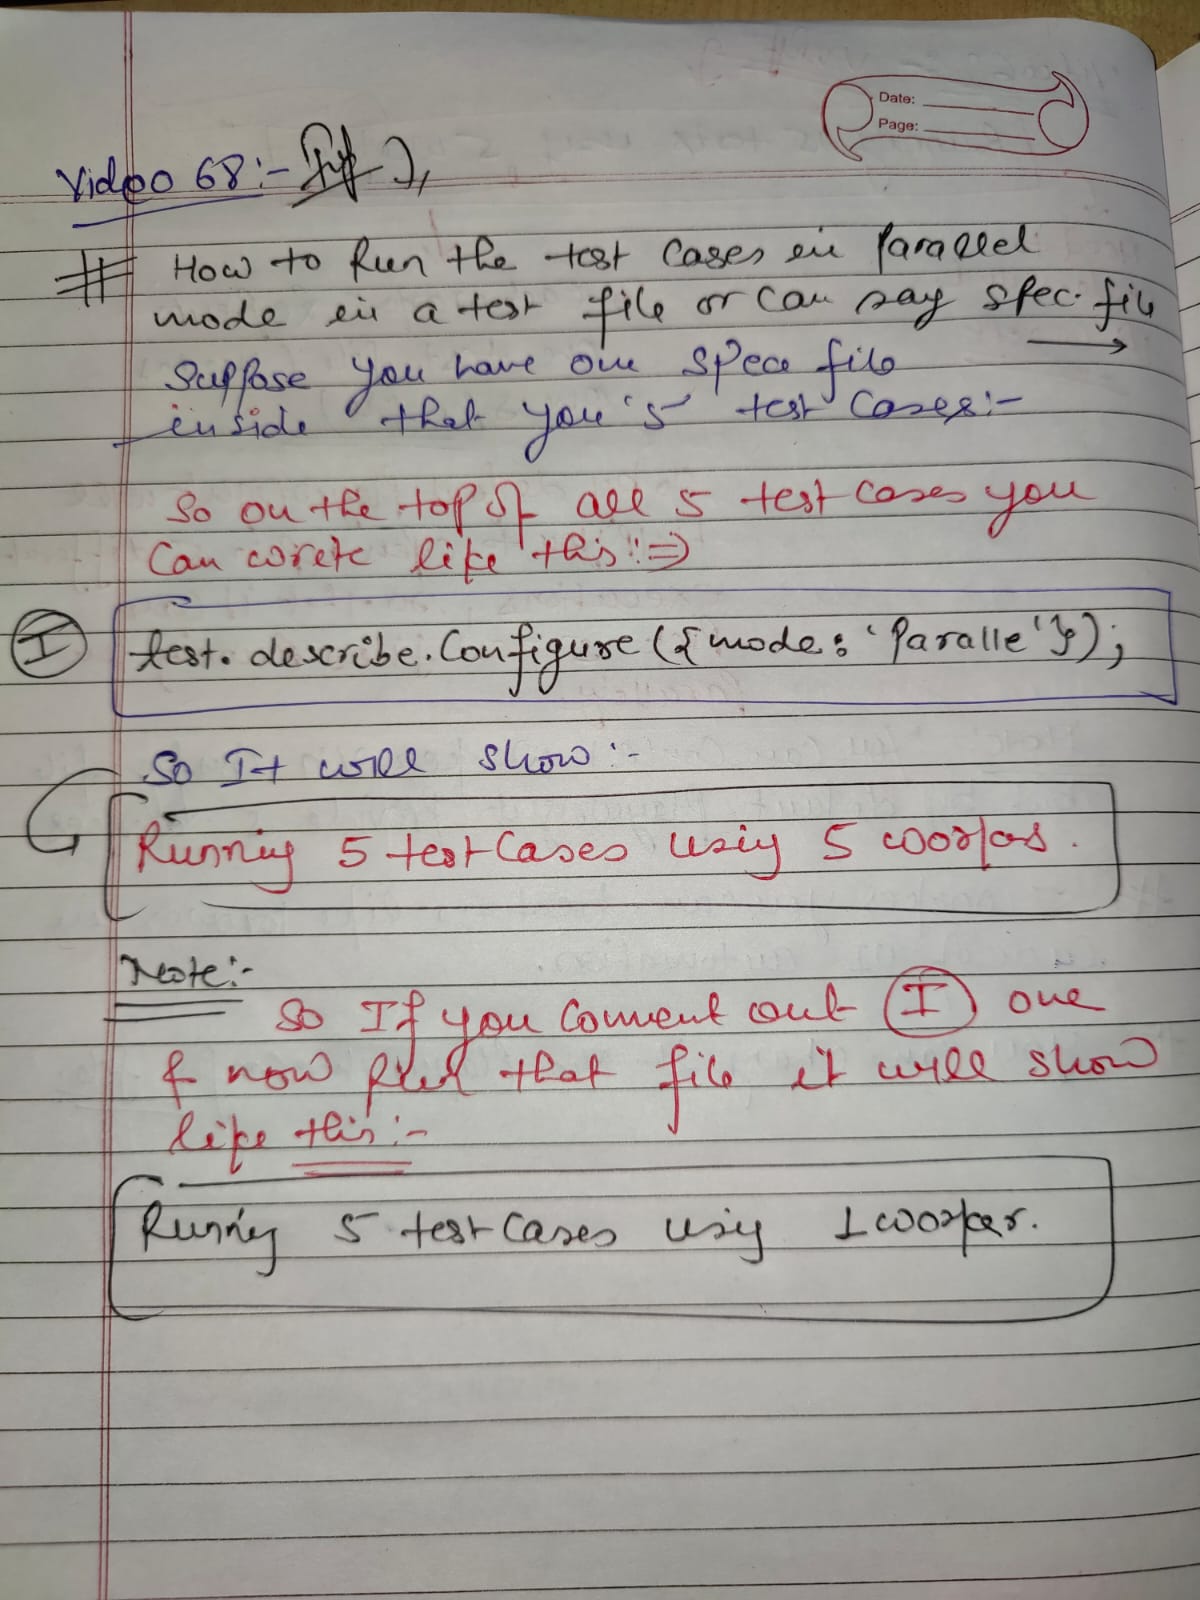 Date:
Page:
Video 68:-
# How to Run the test Cases in Parallel
mode in a test file or can say spec. file
Suppose you have one spece file
inside that you '5' test Cases:-
So on the top of all 5 test cases you
Can write like this!!⇒
I test.describe.Configure({mode: 'Paralle'});
So It will show:-
Running 5 testCases using 5 workers.
Note:-
So If you Comment out I one
& now Run that file it will show
like this:-
Running 5 testCases using 1 worker.